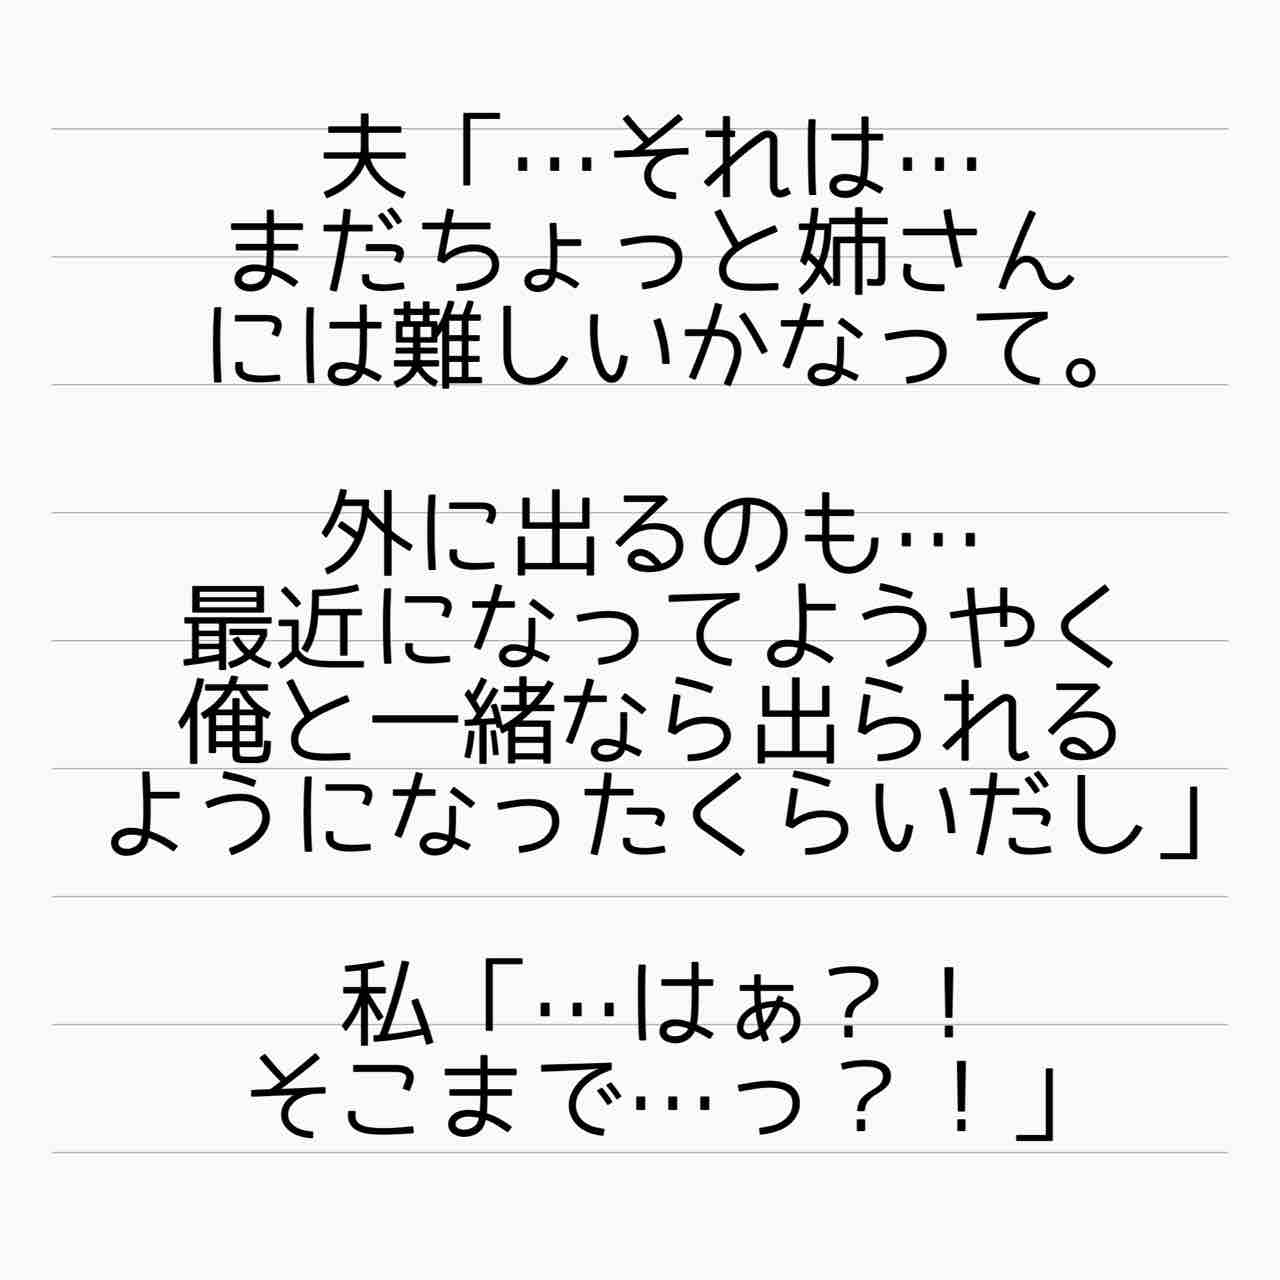 夫「…それは…
まだちょっと姉さん
には難しいかなって。
外に出るのも…
最近になってようやく
俺と一緒なら出られる
ようになったくらいだし」
私「…はぁ？！
そこまで…っ？！」